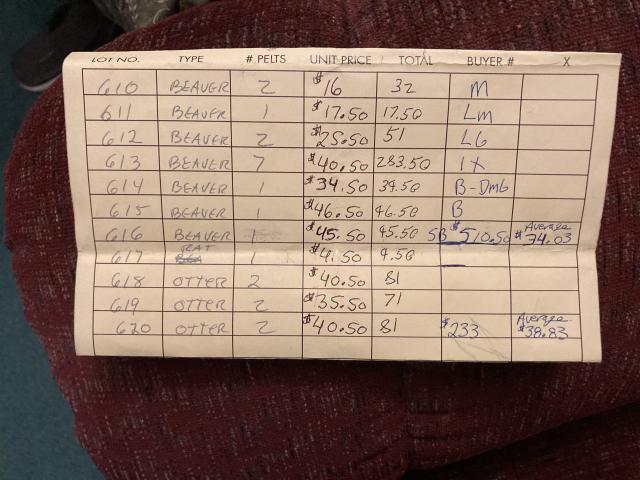 LOT NO. TYPE # PELTS UNIT PRICE TOTAL BUYER # X
610 BEAVER 2 $16 32 M
611 BEAVER 1 $17.50 17.50 Lm
612 BEAVER 2 $25.50 51 LG
613 BEAVER 7 $40.50 283.50 1X
614 BEAVER 1 $34.50 34.50 B-Dmb
615 BEAVER 1 $46.50 46.50 B
616 BEAVER 1 $45.50 45.50 SB $510.50 Average $34.03
617 RAT 1 $4.50 4.50
618 OTTER 2 $40.50 81
619 OTTER 2 $35.50 71
620 OTTER 2 $40.50 81 $233 Average $38.83